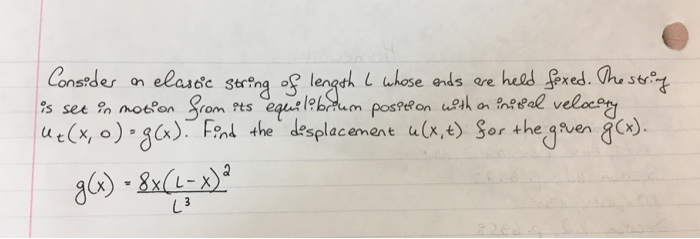 Consider an elastic string of length L whose ends are held fixed. The string
is set in motion from its equilibrium position with an initial velocity
u_t(x, 0) = g(x). Find the displacement u(x,t) for the given g(x).
g(x) = 8x(L-x)²
L³